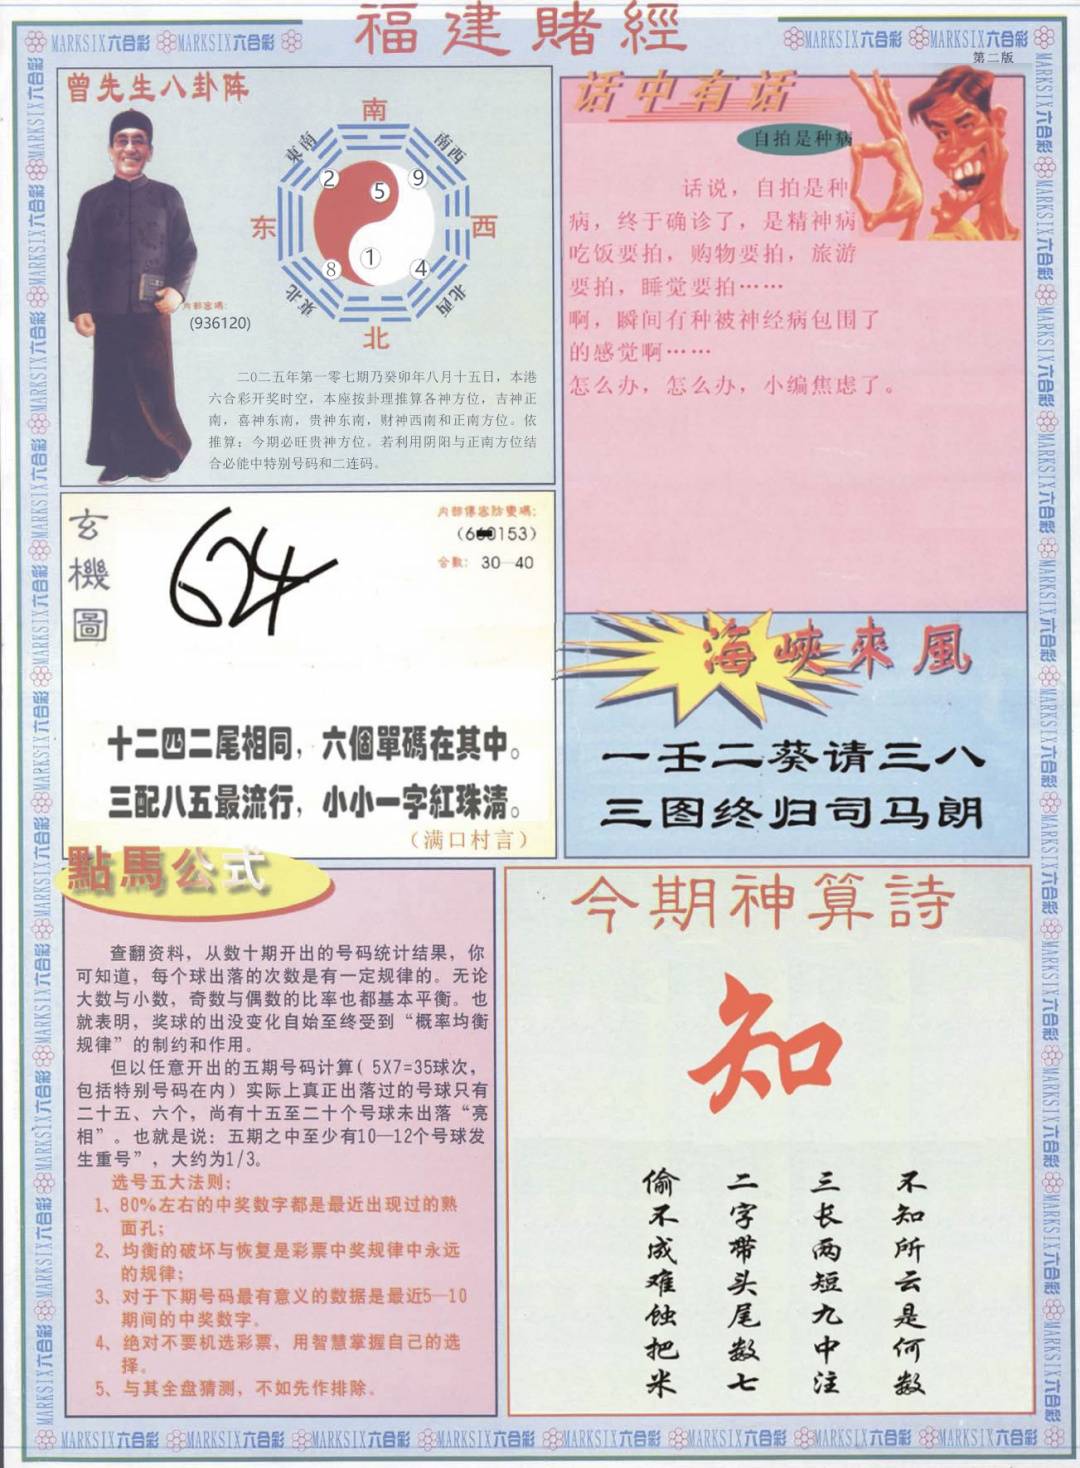 福建賭經
MARKSIX六合彩 MARKSIX六合彩
MARKSIX六合彩 MARKSIX六合彩
第二版
曾先生八卦阵
南
東南
南西
2
5
9
东
西
1
8
4
東北
北西
北
内部密碼:
(936120)
二0二五年第一零七期乃癸卯年八月十五日，本港
六合彩开奖时空，本座按卦理推算各神方位，吉神正
南，喜神东南，贵神东南，财神西南和正南方位。依
推算：今期必旺贵神方位。若利用阴阳与正南方位结
合必能中特别号码和二连码。
话中有话
自拍是种病
话说，自拍是种
病，终于确诊了，是精神病
吃饭要拍，购物要拍，旅游
要拍，睡觉要拍……
啊，瞬间有种被神经病包围了
的感觉啊……
怎么办，怎么办，小编焦虑了。
玄機圖
624
内部傳密防變碼:
0153)
合數: 30—40
十二四二尾相同，六個單碼在其中。
三配八五最流行，小小一字紅珠清。
（满口村言）
海峽來風
一壬二葵请三八
三图终归司马朗
點馬公式
查翻资料，从数十期开出的号码统计结果，你
可知道，每个球出落的次数是有一定规律的。无论
大数与小数，奇数与偶数的比率也都基本平衡。也
就表明，奖球的出没变化自始至终受到“概率均衡
规律”的制约和作用。
但以任意开出的五期号码计算( 5X7=35球次，
包括特别号码在内）实际上真正出落过的号球只有
二十五、六个，尚有十五至二十个号球未出落“亮
相”。也就是说：五期之中至少有10—12个号球发
生重号”，大约为1/3。
选号五大法则：
1、80%左右的中奖数字都是最近出现过的熟
面孔；
2、均衡的破坏与恢复是彩票中奖规律中永远
的规律；
3、对于下期号码最有意义的数据是最近5—10
期间的中奖数字。
4、绝对不要机选彩票，用智慧掌握自己的选
择。
5、与其全盘猜测，不如先作排除。
今期神算詩
知
不知所云是何数
三长两短九中注
二字带头尾数七
偷不成难蚀把米
MARKSIX六合彩 MARKSIX六合彩 MARKSIX六合彩 MARKSIX六合彩 MARKSIX六合彩 MARKSIX六合彩 MARKSIX六合彩 MARKSIX六合彩